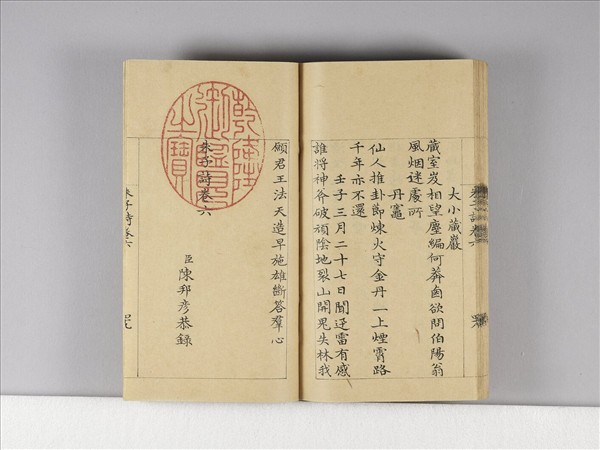 大小藏巖
藏室岌相望塵編何莽鹵欲問伯陽翁
風烟迷處所
丹竈
仙人推卦節煉火守金丹一上煙霄路
千年亦不還
壬子三月二十七日聞迅雷有感
誰將神斧破頑陰地裂山開鬼失林我
願君王法天造早施雄斷答羣心
乾隆御覽之寶
朱子詩卷六
臣陳邦彥恭錄
朱子詩卷六